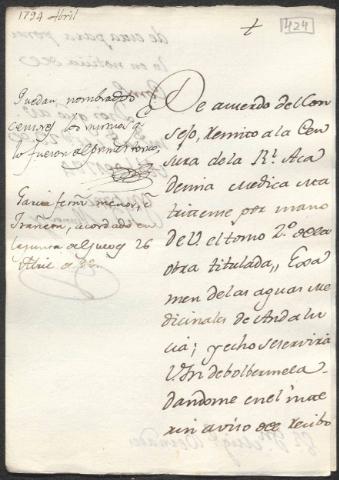 1794 Abril
+
424
Quedan nombrados
censores los mismos q.
lo fueron al primer tomo,
Garcia fern.z menor, e
Iranzon, acordado en
la junta del jueves 26
Abril de 94.
De acuerdo del Con
sejo, remito a la Cen
sura de la R.l Aca
demia Medica Ma
tritense por mano
de V el tomo 2.o de la
obra titulada,, Exa
men de las aguas me
dicinales de Andalu
cia; y echo se servirá
Vm debolbermela
dandome en el ínte
rin aviso del recibo